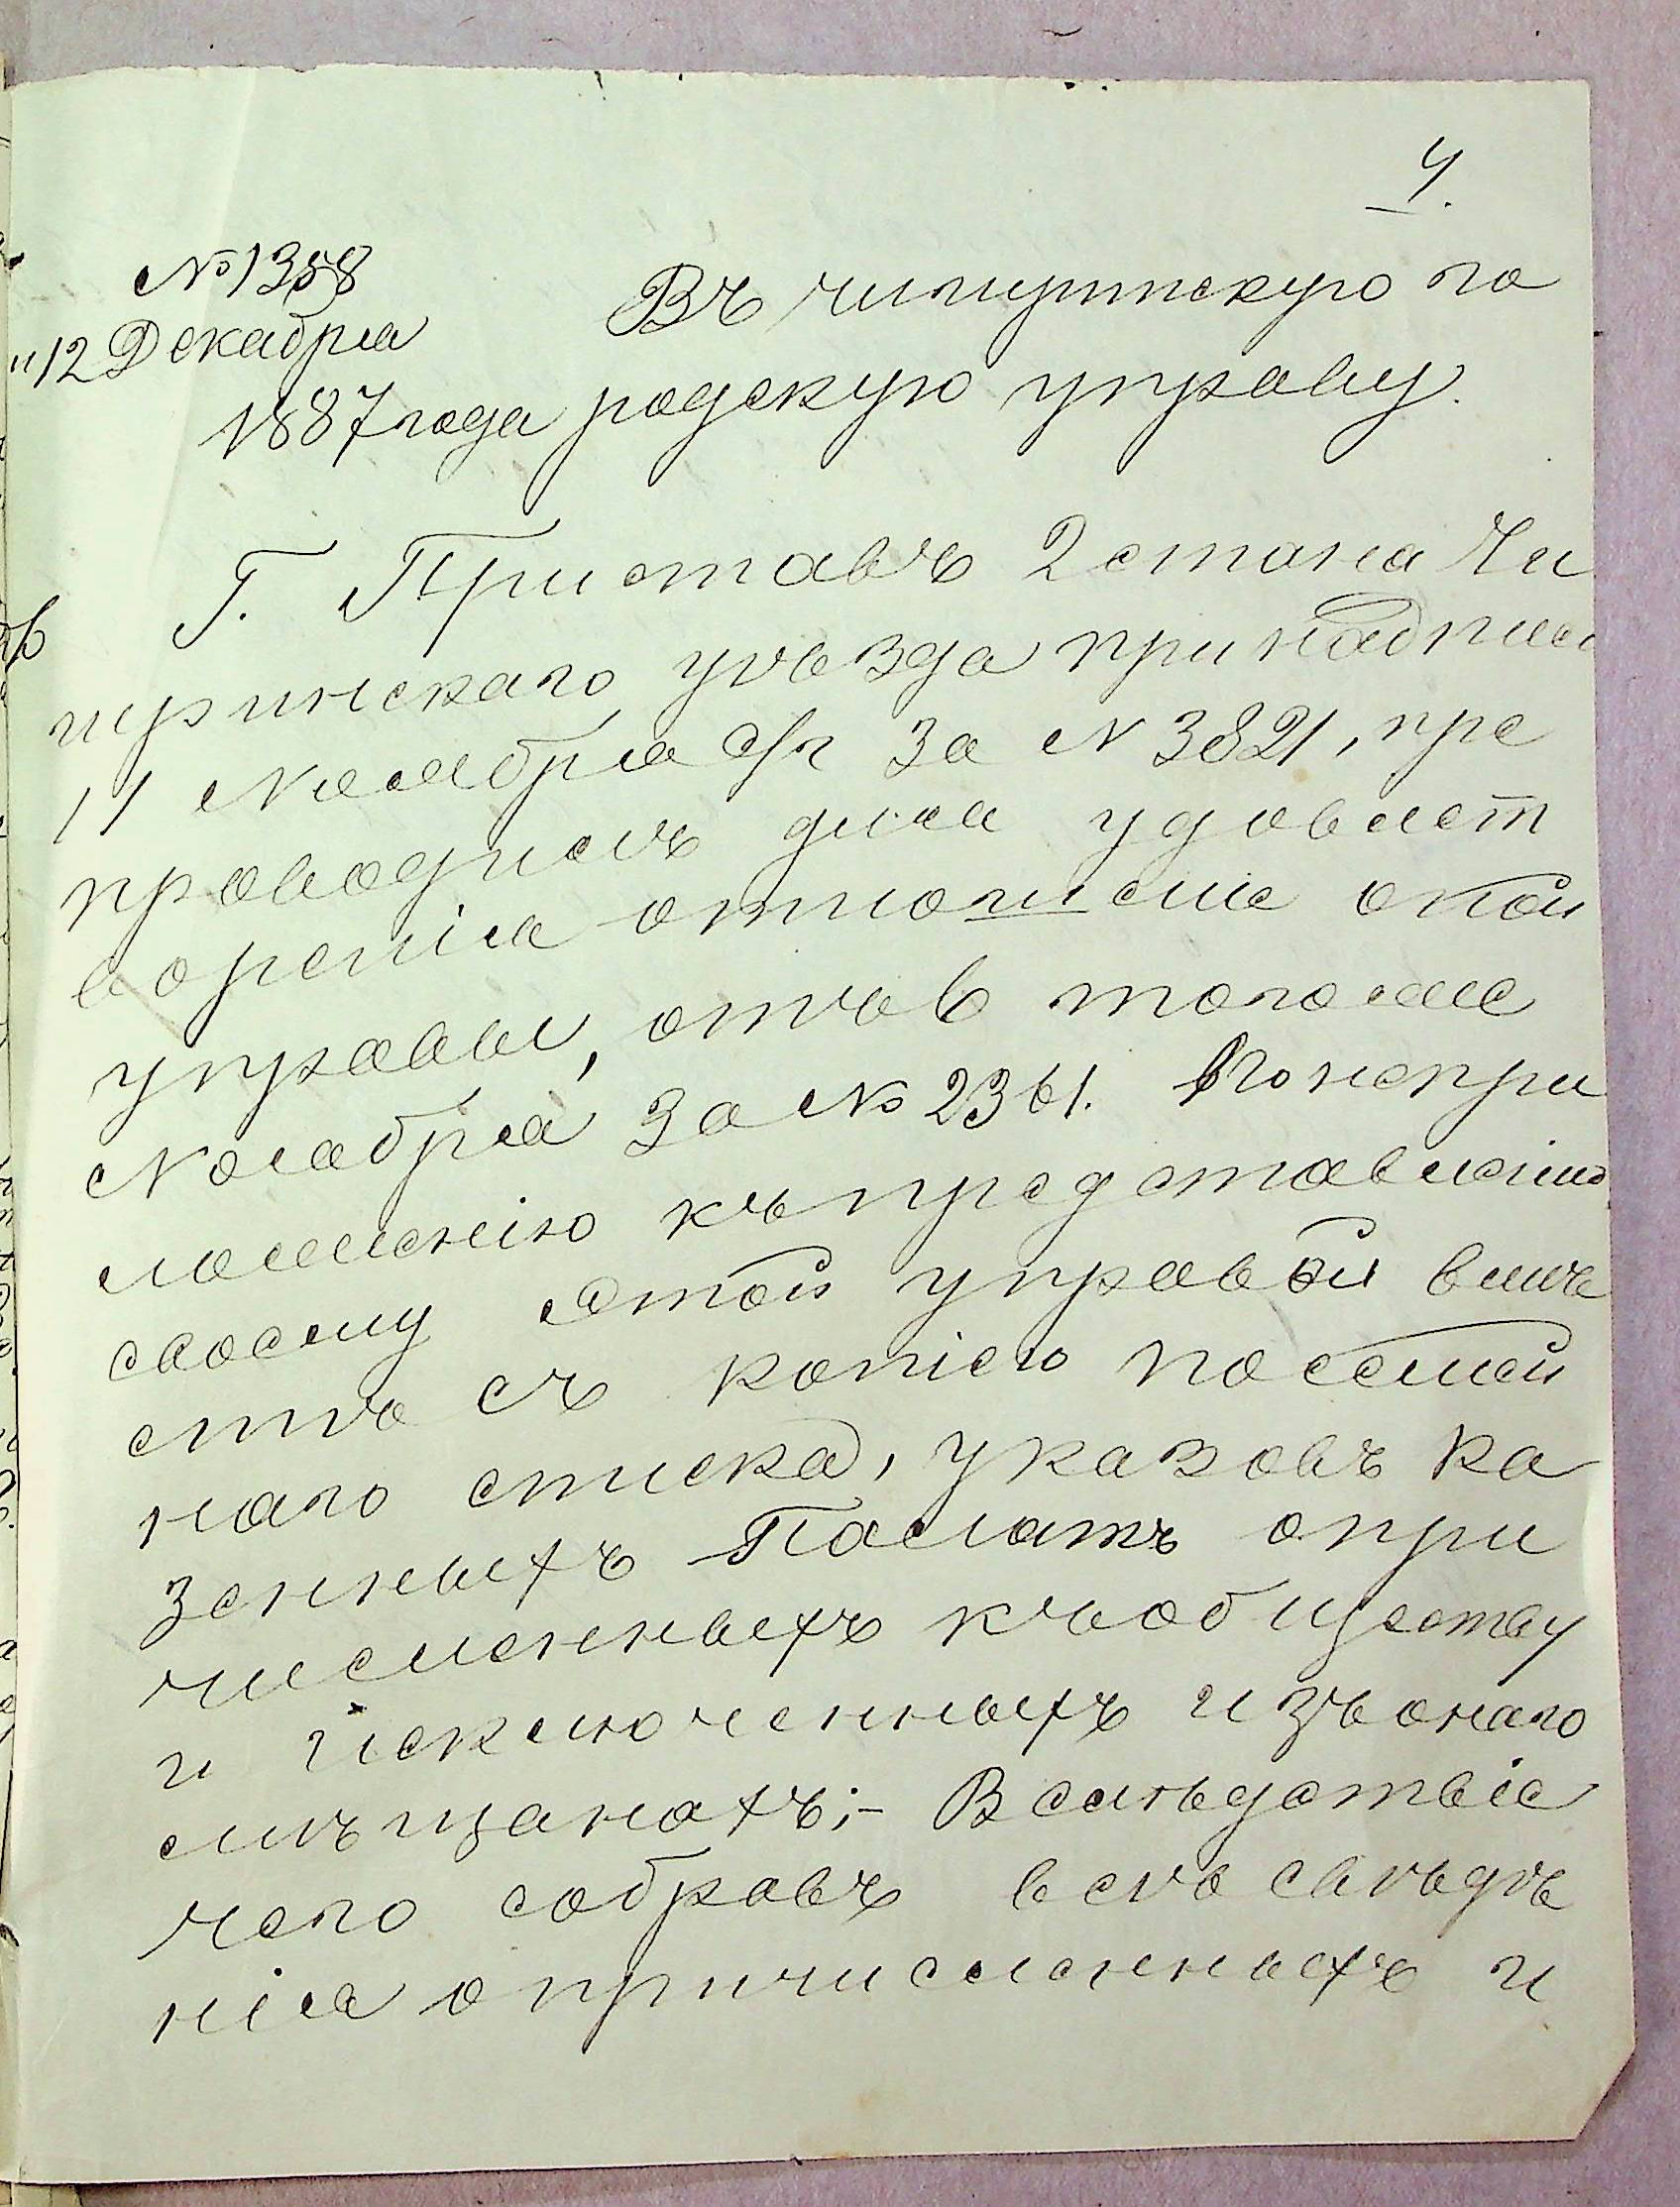 4.
№ 1358
"12 Декабря
1887 года
Въ чигиринскую го
родскую управу.
Г. Приставъ 2 стана Чи
гиринскаго уѣзда при надписи
11 Ноября с/г за № 3821, пре
проводилъ для удовлет
воренія отношеніе оной
управы, отъ 6 того же
Ноября за № 2361. О непри
ложенію къ представленію
своему этой управѣ вмѣ
стѣ съ копіею посемей
наго списка, указовъ ка
зенныхъ Палатъ о при
численныхъ къ обществу
и исключенныхъ изъ онаго
мѣщанахъ;- Вслѣдствіе
чего собравъ всѣ свѣдѣ
нія о причисленныхъ и